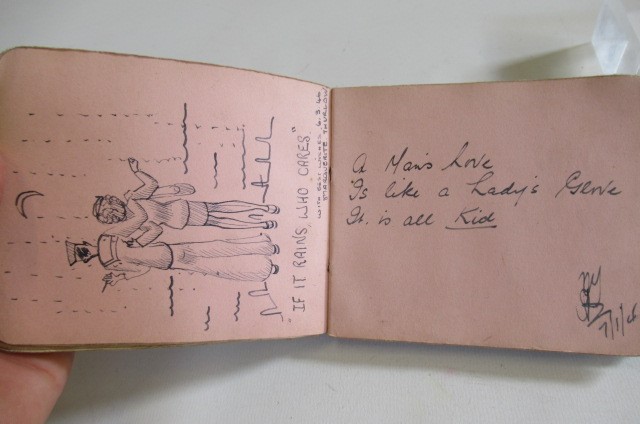 "IF IT RAINS, WHO CARES"
WITH BEST WISHES 6.3.46
MARGUERITE THURLOW
A Man's Love
Is like a Lady's Glove
It is all Kid
7/1/46